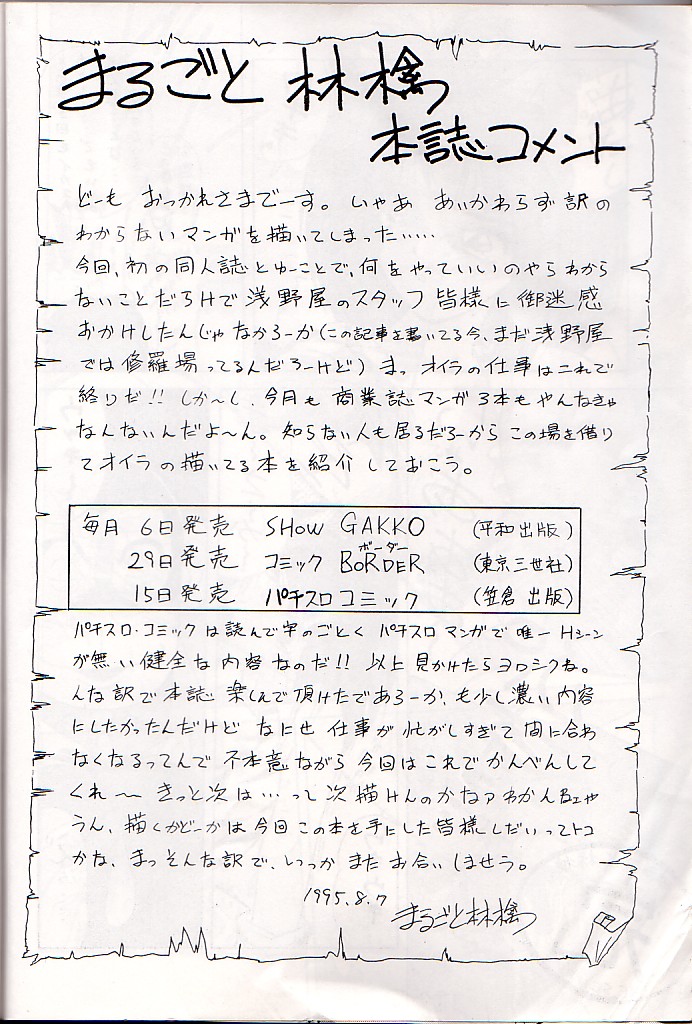 まるごと 林檎
本誌コメント
どーも おつかれさまでーす。いやあ あいかわらず訳の
わからないマンガを描いてしまった……
今回、初の同人誌とゆーことで、何をやっていいのやらわから
ないことだらけで浅野屋のスタッフ皆様に御迷惑
おかけしたんじゃなかろーか(この記事を書いてる今、まだ浅野屋
では修羅場ってるんだろーけど)まっ オイラの仕事はこれで
終りだ!! しか〜し、今月も商業誌マンガ3本もやんなきゃ
なんないんだよ〜ん。知らない人も居るだろーからこの場を借り
てオイラの描いてる本を紹介しておこう。
毎月 6日発売 SHOW GAKKO (平和出版)
29日発売 コミック BORDER (東京三世社)
ボーダー
15日発売 パチスロコミック (笠倉出版)
パチスロ・コミックは読んで字のごとくパチスロマンガで唯一Hシーン
が無い健全な内容なのだ!! 以上見かけたらヨロシクね。
んな訳で本誌楽しんで頂けたであろーか、も少し濃い内容
にしたかったんだけど なにせ仕事が忙がしすぎて間に合わ
なくなるってんで 不本意ながら今回はこれでかんべんして
くれ〜 きっと次は…って次描けんのかなァわかん
うん、描くかどーかは今回この本を手にした皆様しだいってトコ
かな、まっそんな訳で、いつか またお会いしませう。
1995.8.7
まるごと林檎